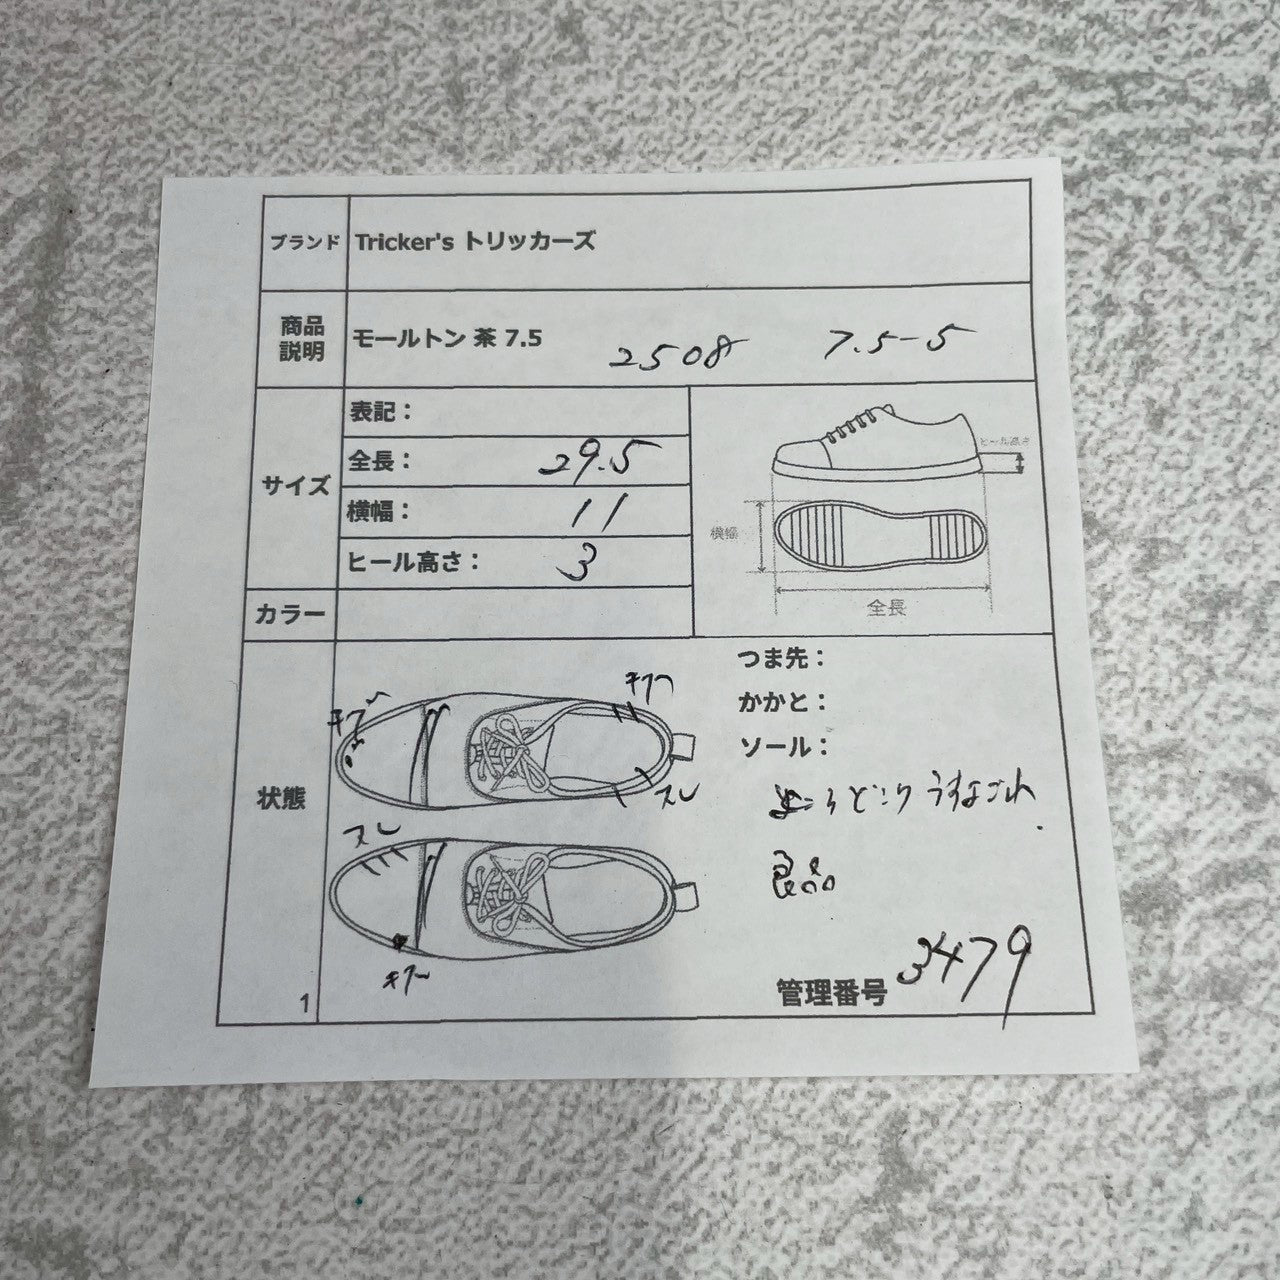 ブランド Tricker's トリッカーズ
商品説明 モールトン 茶 7.5 2508 7.5-5
サイズ
表記：
全長： 29.5
横幅： 11
ヒール高さ： 3
ヒール高さ
横幅
全長
カラー
状態
つま先：
かかと：
ソール：
キズ
キズ
スレ
スレ
キズ
ところどころ うすよごれ
良品
管理番号 3479
1